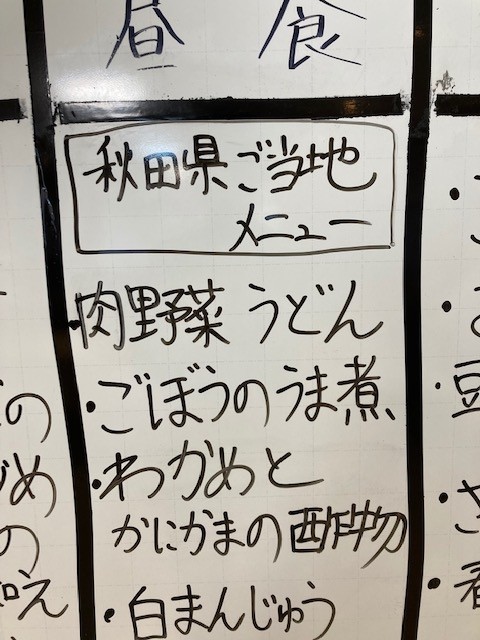 昼食
秋田県ご当地
メニュー
・肉野菜うどん
・ごぼうのうま煮
・わかめと
かにかまの酢物
・白まんじゅう